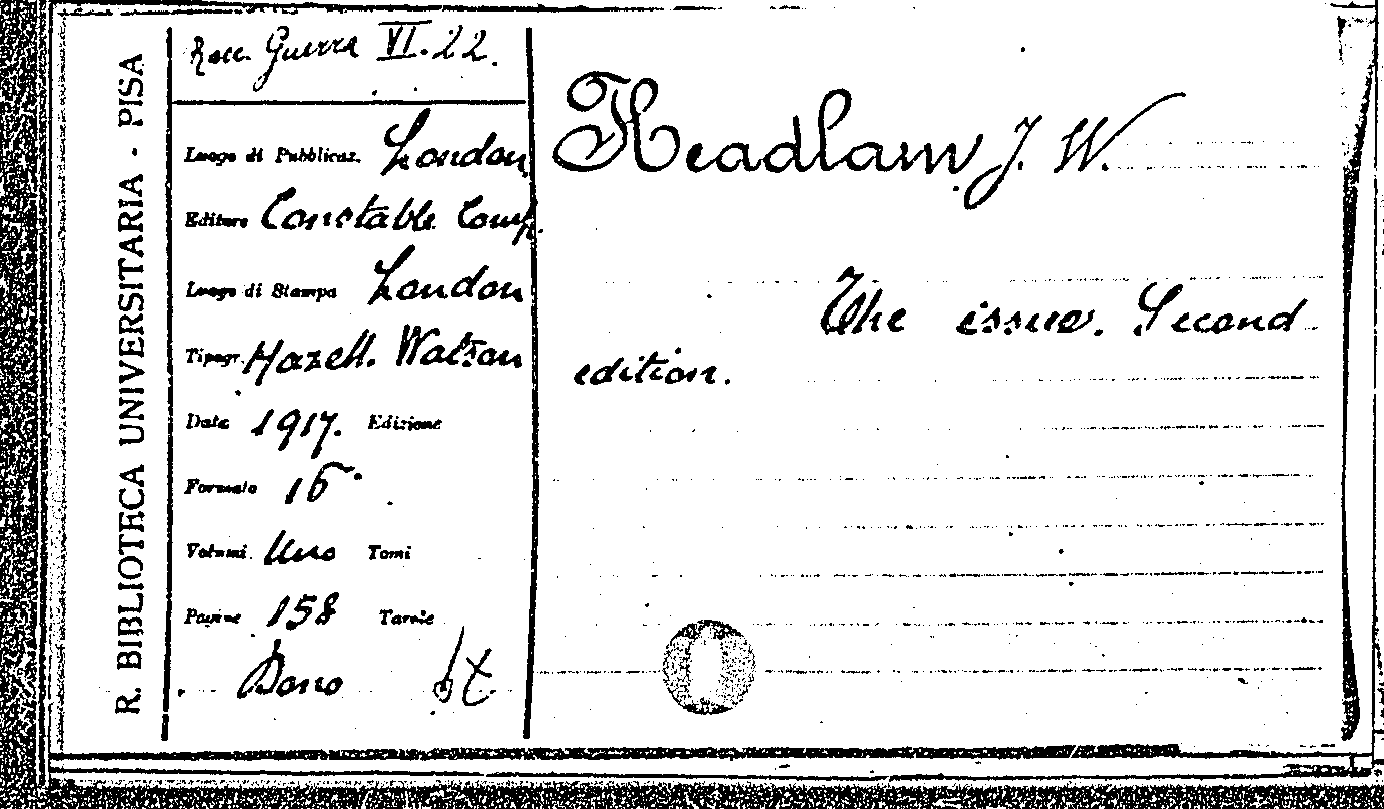 R. BIBLIOTECA UNIVERSITARIA - PISA
Racc. Guerra VI. 22.
Luogo di Pubblicaz. London
Editore Constable Comp.
Luogo di Stampa London
Tipogr. Hazell. Watson
Data 1917. Edizione
Formato 16°
Volumi Uno Tomi
Pagine 158 Tavole
Dono
Headlam J. W.
The issue. Second
edition.